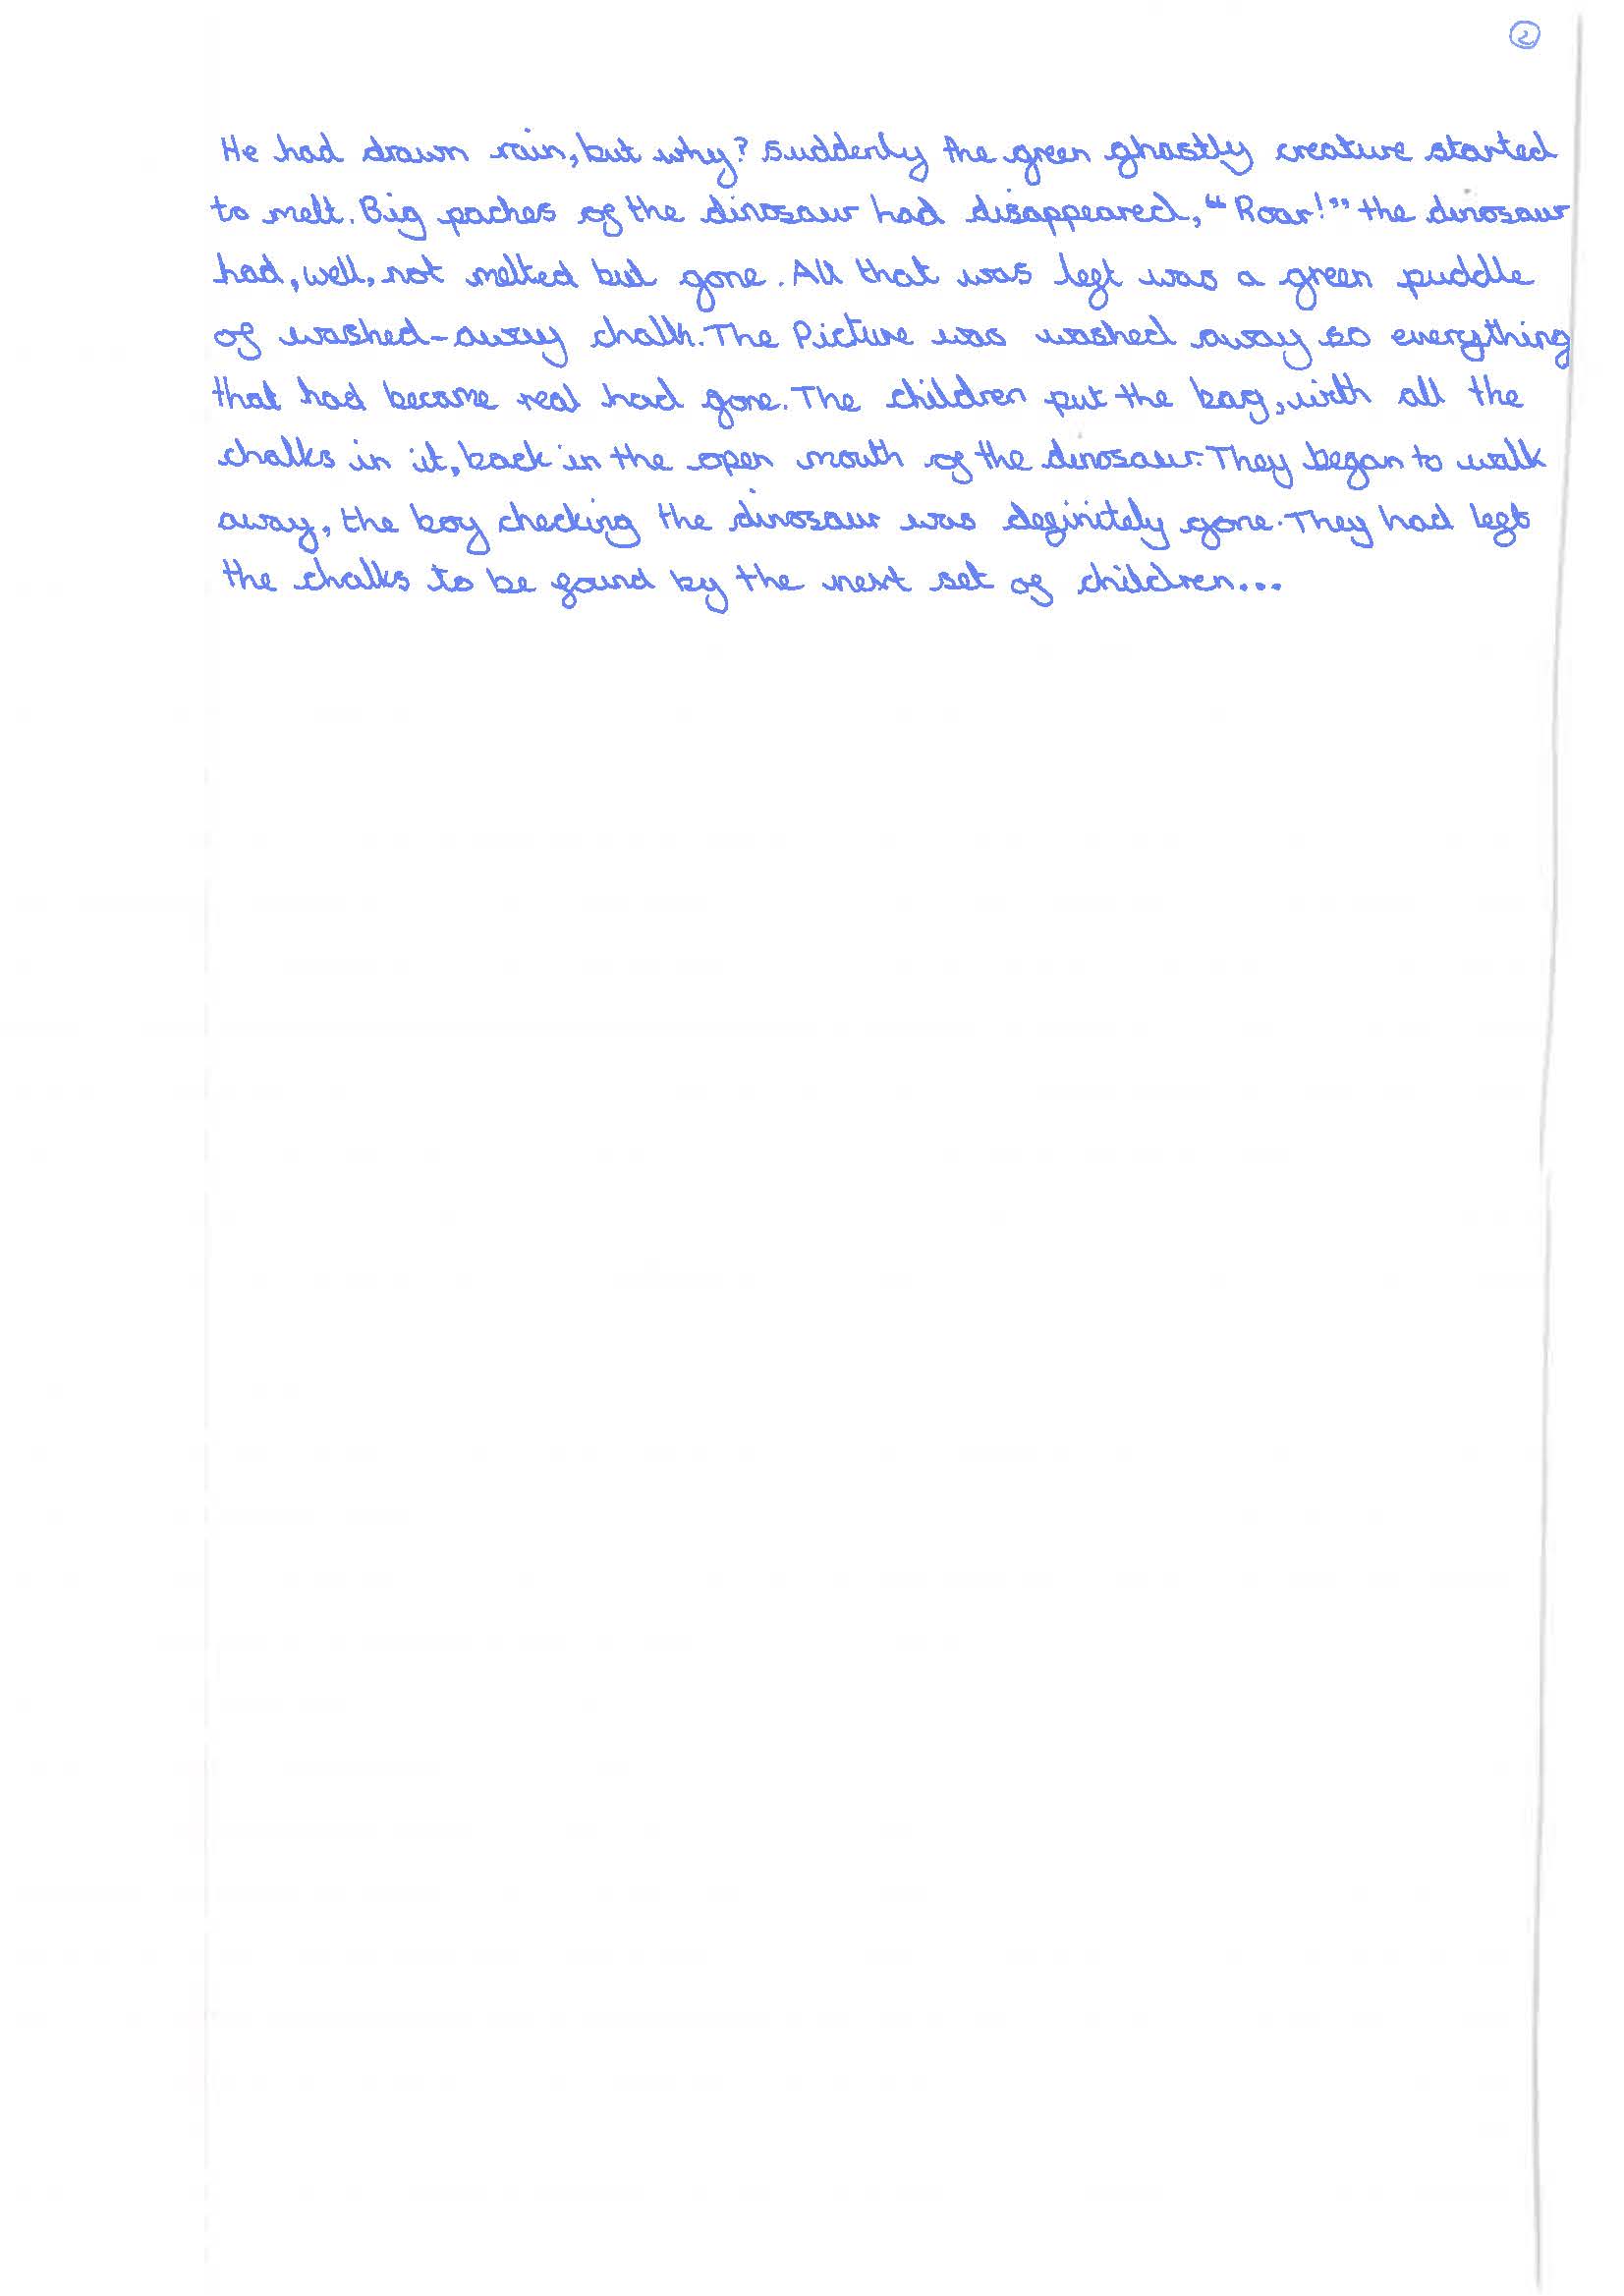 2
He had drawn rain, but why? Suddenly the green ghastly creature started
to melt. Big paches of the dinosaur had disappeared, "Roar!" the dinosaur
had, well, not melted but gone. All that was left was a green puddle
of washed-away chalk. The Picture was washed away so everything
that had become real had gone. The children put the bag, with all the
chalks in it, back in the open mouth of the dinosaur. They began to walk
away, the boy checking the dinosaur was definitely gone. They had left
the chalks to be found by the next set of children...